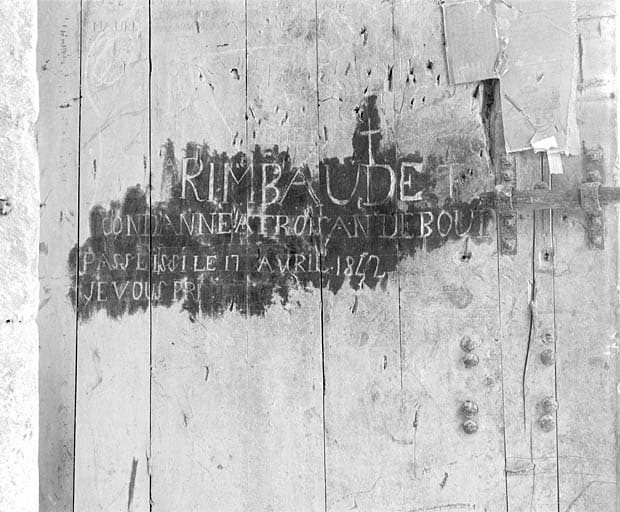 MAURE
RIMBAUDE
CONDANNE A TROIS AN DE BOUL
PASSE ISSI LE 17 AVRIL 1842
JE VOUS PRI